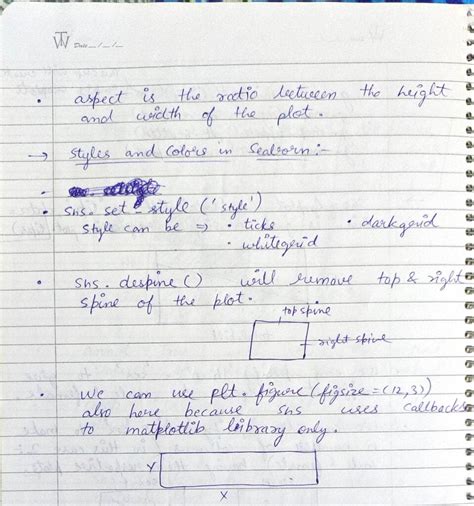 TW Date __/__/__
• aspect is the ratio between the height
and width of the plot.
→ Styles and Colors in Seaborn:-
• sns. set_style ('style')
style can be ⇒ • ticks • darkgrid
• whitegrid
• sns. despine () will remove top & right
spine of the plot.
top spine
right spine
• We can use plt. figure (figsize = (12,3))
also here because sns uses callbacks
to matplotlib library only.
Y
X